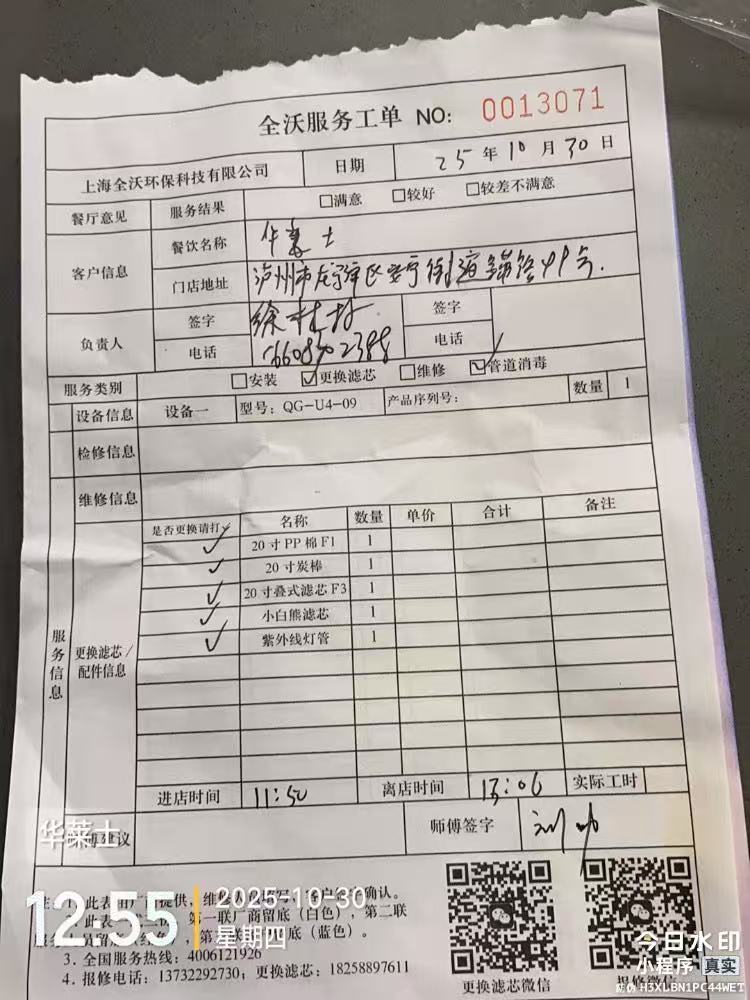 全沃服务工单 NO: 0013071
上海全沃环保科技有限公司 日期 25 年 10 月 30 日
餐厅意见 服务结果 □满意 □较好 □较差不满意
客户信息 餐饮名称 华莱士
门店地址 泸州市龙马潭区安宁街道 49号
负责人 签字 签字
电话 电话
服务类别 □安装 ☑更换滤芯 □维修 ☑管道消毒
设备信息 设备一 型号: QG-U4-09 产品序列号: 数量 1
检修信息
维修信息
服务信息 更换滤芯/配件信息
是否更换请打✓ 名称 数量 单价 合计 备注
✓ 20寸PP棉F1 1
✓ 20寸炭棒 1
✓ 20寸叠式滤芯F3 1
✓ 小白熊滤芯 1
✓ 紫外线灯管 1
进店时间 11:50 离店时间 13:06 实际工时
建议 师傅签字
华莱士
12:55 2025-10-30
星期四
3. 全国服务热线: 4006121926
4. 报修电话: 13732292730; 更换滤芯: 18258897611
更换滤芯微信 报修微信
今日水印
小程序 真实
防伪 H3XLBN1PC44WET